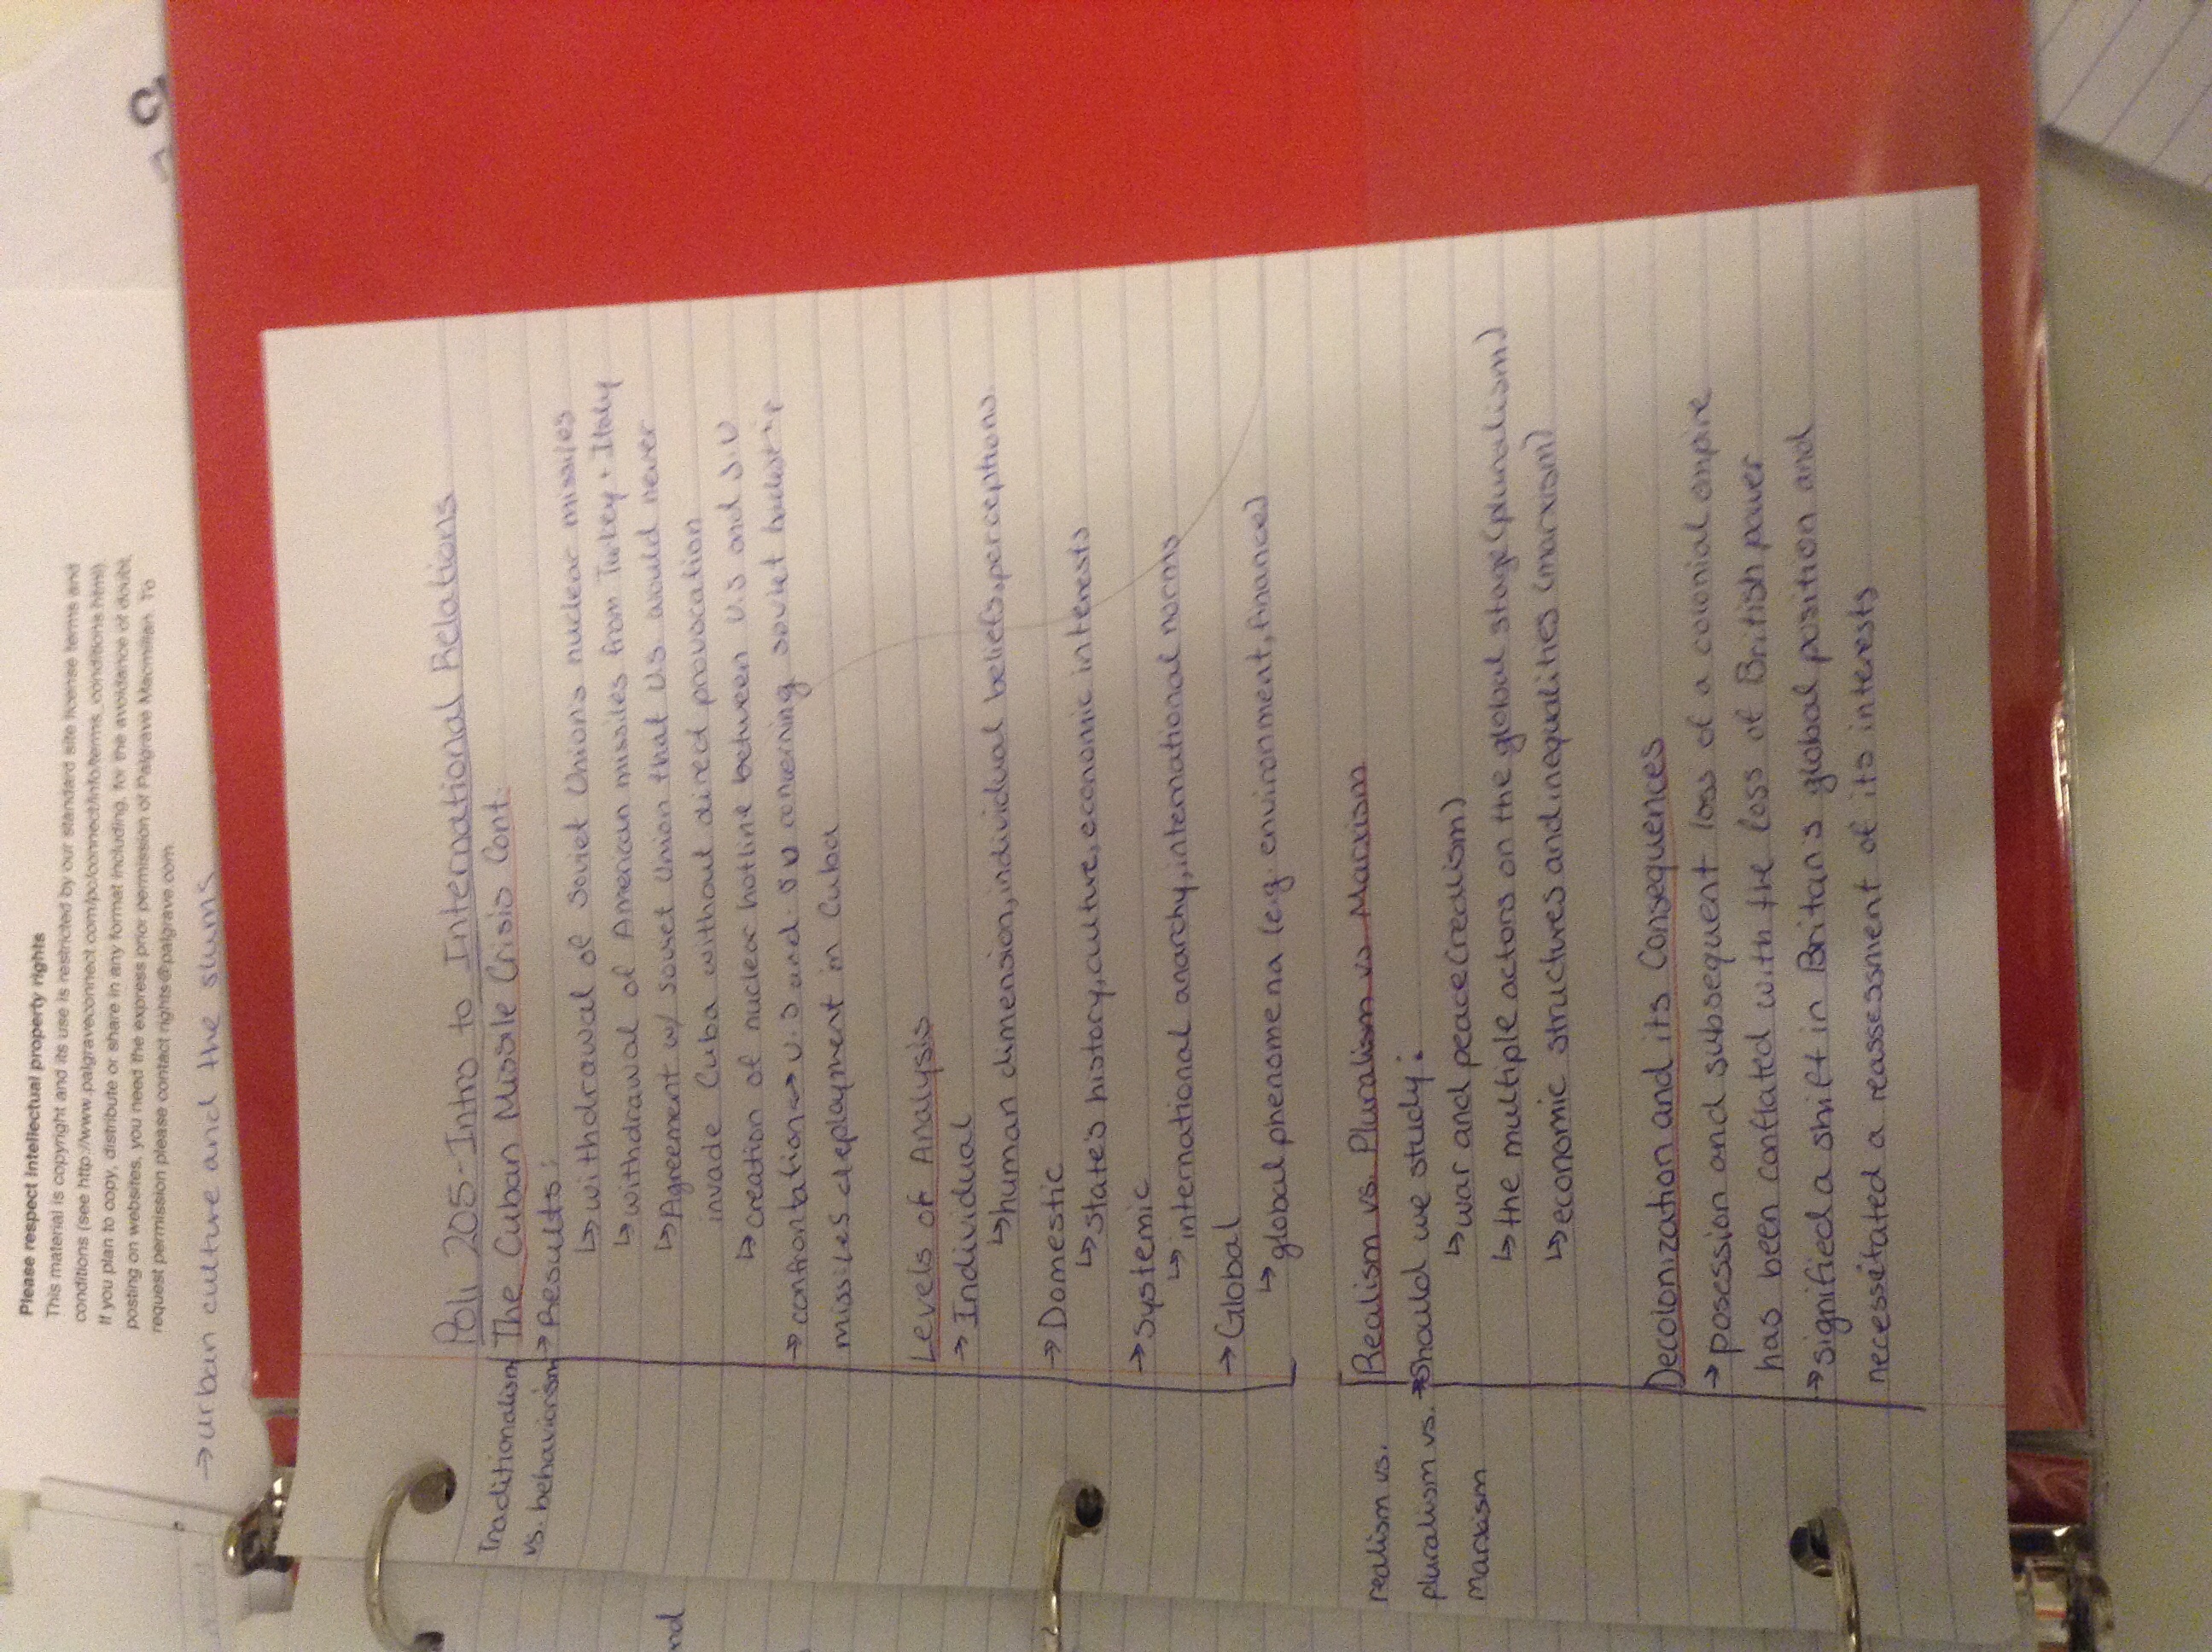 Please respect intellectual property rights
This material is copyright and its use is restricted by our standard site license terms and
conditions (see http://www.palgraveconnect.com/pc/connect/info/terms_conditions.html).
If you plan to copy, distribute or share in any format including, for the avoidance of doubt,
posting on websites, you need the express prior permission of Palgrave Macmillan. To
request permission please contact rights@palgrave.com.
→ urban culture and the slums
Poli 205 - Intro to International Relations
Traditionalism
vs. behaviorism
The Cuban Missile Crisis Cont.
→ Results:
↳ withdrawal of Soviet Unions nuclear missiles
↳ withdrawal of American missiles from Turkey + Italy
↳ Agreement w/ soviet union that US would never
invade Cuba without direct provocation
↳ creation of nuclear hotline between U.S and S.U
→ confrontation → U.S and S U concerning soviet
missiles deployment in Cuba
Levels of Analysis
→ Individual
↳ human dimension, individual beliefs, perceptions
→ Domestic
↳ state's history, culture, economic interests
→ Systemic
↳ international anarchy, international norms
→ Global
↳ global phenomena (e.g. environment, finance)
realism vs.
pluralism vs.
marxism
Realism vs. Pluralism vs Marxism
→ Should we study:
↳ war and peace (realism)
↳ the multiple actors on the global stage (pluralism)
↳ economic structures and inequalities (marxism)
Decolonization and its Consequences
→ posession and subsequent loss of a colonial empire
has been conflated with the loss of British power
→ signified a shift in Britain's global position and
necessitated a reassessment of its interests
nd